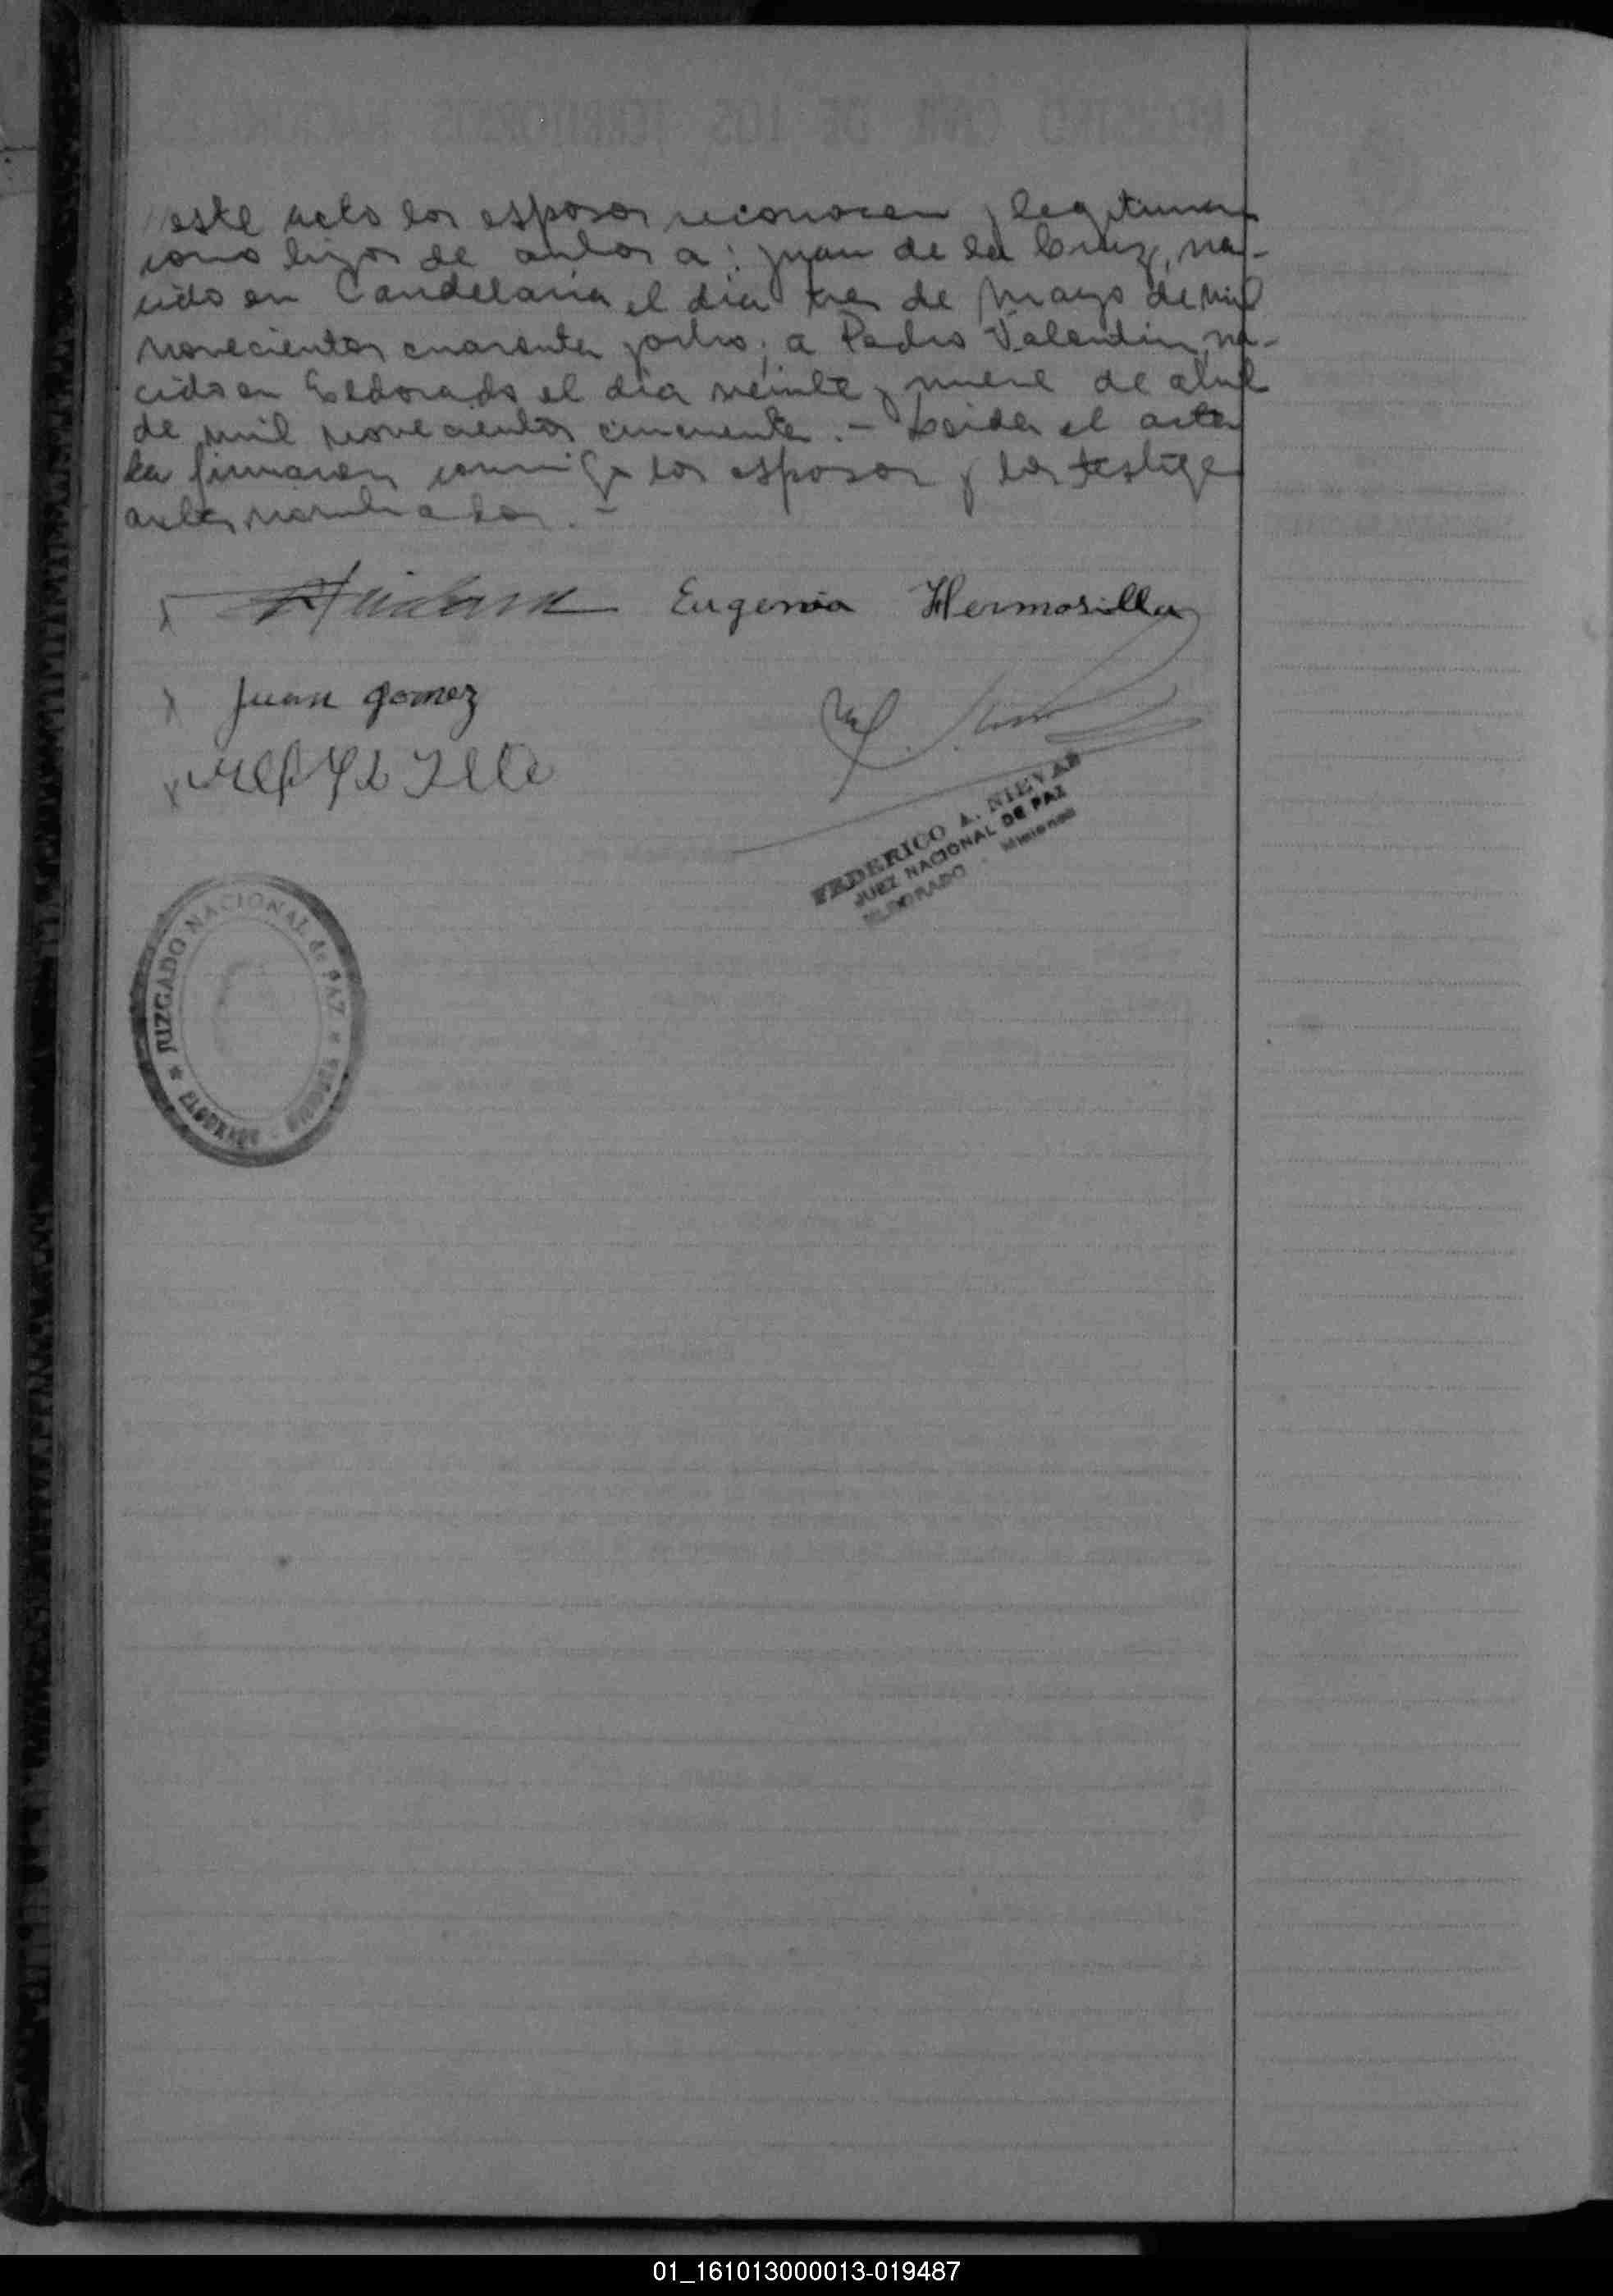 este acto los esposos reconocen y legitiman
como hijos de ambos a: Juan de la Cruz, na-
cido en Candelaria el dia tres de Mayo de mil
novecientos cuarenta y ocho; a Pedro Valentin, na-
cido en Eldorado el dia veinte y nueve de abril
de mil novecientos cincuenta.- Leida el acta
la firmaron conmigo los esposos y los testigos
antes nombrados.-
Eugenia Hermosilla
Juan gomez
FEDERICO A. NIEVAS
JUEZ NACIONAL DE PAZ
ELDORADO - Misiones
JUZGADO NACIONAL de PAZ
ELDORADO
01_161013000013-019487